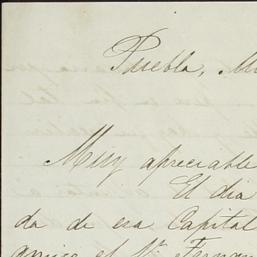 Puebla,
Muy apreciable
El dia
da de esa Capital
amigo el Sr. Fernan